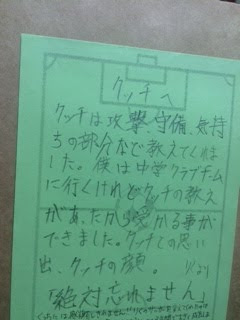 クッチへ
クッチは攻撃、守備、気持
ちの部分まで教えてくれま
した。僕は中学クラブチーム
に行くけれどクッチの教え
があったから受かる事が
できました。クッチとの思い
出、クッチの顔。
「絶対忘れません」